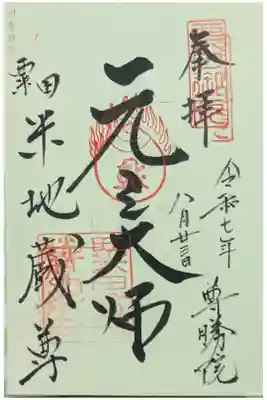 奉拝
令和七年
八月廿三日
尊勝院
元三大师
粟田
米地蔵尊